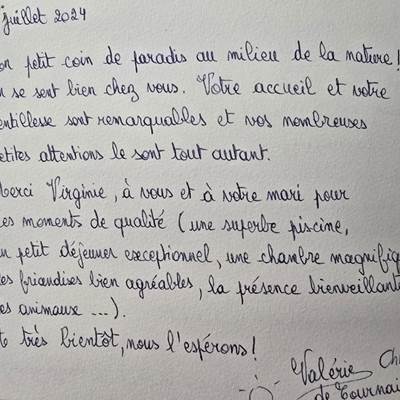 juillet 2024
on petit coin de paradis au milieu de la nature!
se sent bien chez vous. Votre accueil et votre
entillesse sont remarquables et vos nombreuses
etites attentions le sont tout autant.
erci Virginie, à vous et à votre mari pour
es moments de qualité (une superbe piscine,
un petit déjeuner exceptionnel, une chambre magnifiq
es friandises bien agréables, la présence bienveillante
es animaux ...).
très bientôt, nous l'espérons!
Valérie Ch
de Tournai